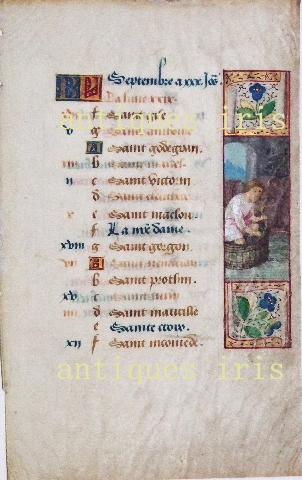 Septembre a xxx. Jo's.
La lune xxix.
f Saint gile
g Saint
A Saint godegran.
b Saint
ii c Saint victorin
d Saint
x e Saint maclou.
f La n're dame.
xviii g Saint gorgon.
A Saint
b Saint prothin.
xv c Saint
d Saint maurille
e Sainte croix.
xii f Saint nicomede.
antiques iris
antiques iris